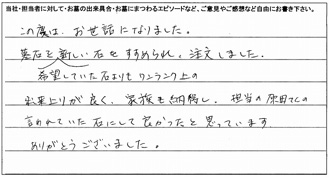 当社・担当者に対して・お墓の出来具合・お墓にまつわるエピソードなど、ご意見やご感想など自由にお書き下さい。
この度は、お世話になりました。
墓石を新しい石をすすめられ、注文しました。
希望していた石よりもワンランク上の
出来上りが良く、家族も納得し、担当の原田さんの
言われていた石にして良かったと思っています
ありがとうございました。